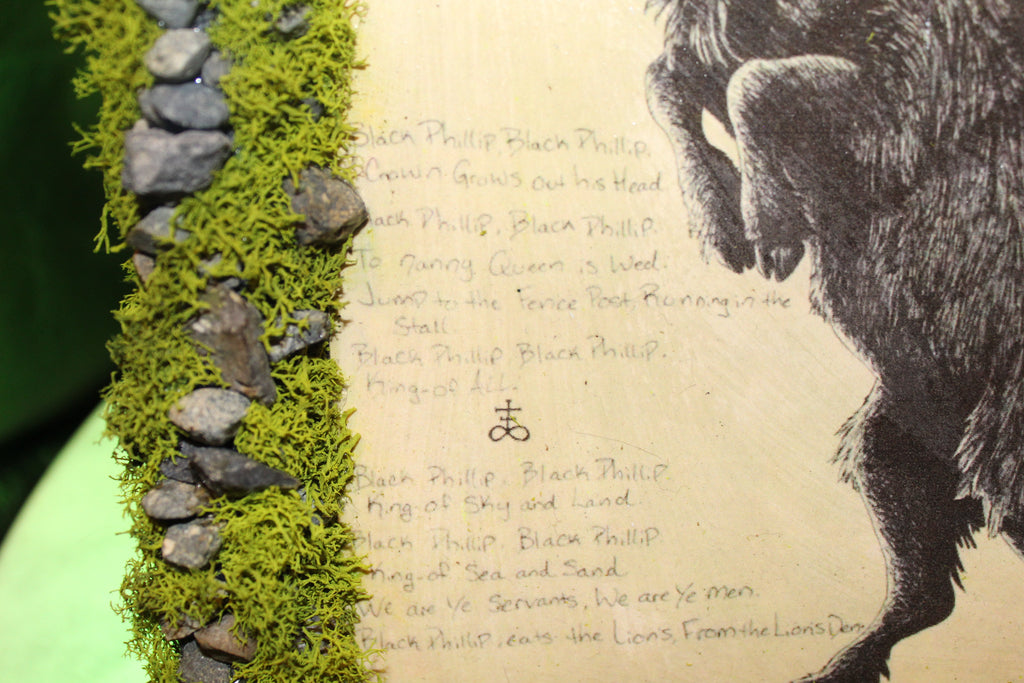 Black Phillip, Black Phillip.
Crown Grows out his Head
Black Phillip, Black Phillip.
To nanny Queen is Wed.
Jump to the Fence Post, Running in the
Stall.
Black Phillip, Black Phillip.
King-of ALL.
Black Phillip, Black Phillip
King-of Sky and Land.
Black Phillip, Black Phillip
King-of Sea and Sand
We are Ye Servants, We are Ye men.
Black Phillip, eats the Lions, From the Lions Den.